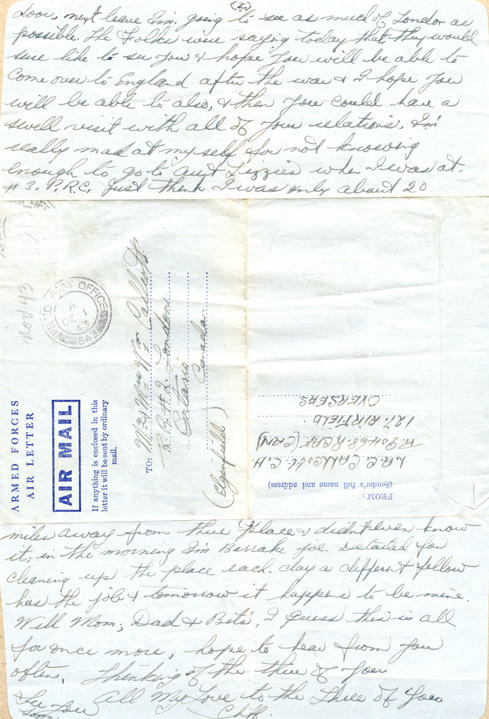 (2)
soon, next leave I'm going to see as much of London as
possible. The folks were saying today that they would
sure like to see you & hope you will be able to
come over to England after the war & I hope you
will be able to also, & then you could have a
swell visit with all of your relations. I'm
really mad at myself for not knowing
enough to go to Aunt Lizzies when I was at
# 3. P.R.C. Just think I was only about 20
ARMED FORCES
AIR LETTER
AIR MAIL
If anything is enclosed in this
letter it will be sent by ordinary
mail.
Nov 43
FIELD POST OFFICE
TO: Mr & Mrs Wm
R.R. # 2. London
Ontario
Canada
(Elginfield)
FROM:
(Sender's full name and address)
L.A.C. C.H.
R.C.A.F. (CAN)
127 AIRFIELD
OVERSEAS
miles away from there place & didn't even know
it; in the morning I'm Barrake joe. Detailed for
cleaning up the place each day a differnt fellow
has the job & tomorrow it happens to be mine.
Well Mom, Dad & Bets', I guess this is all
for once more, hope to hear from you
often. Thinking of the three of you
All My Love to the Three of you
See You
Soon
Cliff.